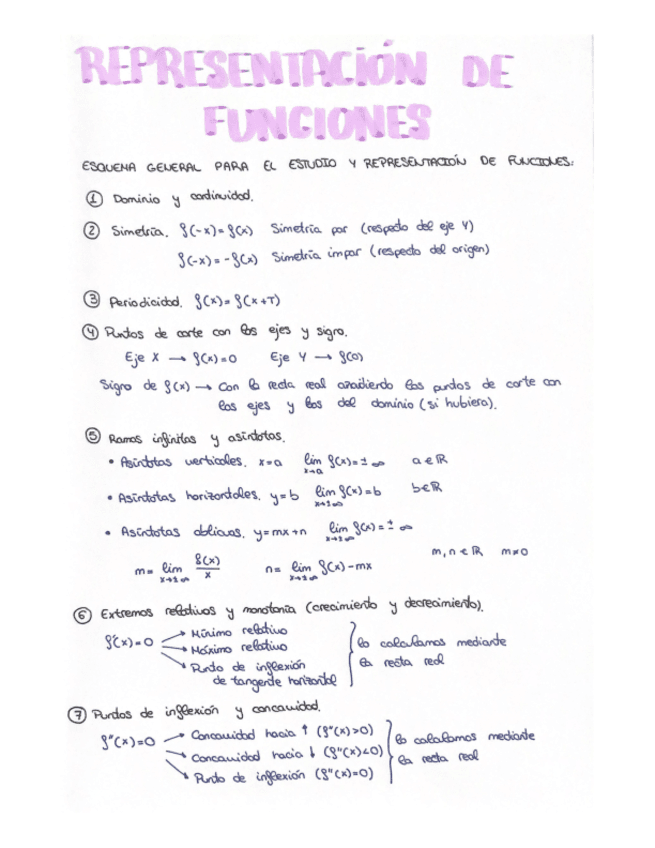 REPRESENTACIÓN DE
FUNCIONES
ESQUEMA GENERAL PARA EL ESTUDIO Y REPRESENTACIÓN DE FUNCIONES:
① Dominio y continuidad.
② Simetría. f(-x)=f(x) Simetría par (respecto del eje Y)
f(-x)=-f(x) Simetría impar (respecto del origen)
③ Periodicidad. f(x)=f(x+T)
④ Puntos de corte con los ejes y signo.
Eje X → f(x)=0 Eje Y → f(0)
Signo de f(x) → Con la recta real añadiendo los puntos de corte con
los ejes y los del dominio (si hubiera).
⑤ Ramas infinitas y asíntotas.
• Asíntotas verticales. x=a lim x→a f(x)=±∞ a∈ℝ
• Asíntotas horizontales. y=b lim x→±∞ f(x)=b b∈ℝ
• Asíntotas oblicuas. y=mx+n lim x→±∞ f(x)=±∞
m,n∈ℝ m≠0
m=lim x→±∞ f(x)/x n=lim x→±∞ f(x)-mx
⑥ Extremos relativos y monotonía (crecimiento y decrecimiento).
f'(x)=0 → Mínimo relativo
→ Máximo relativo
→ Punto de inflexión
de tangente horizontal
lo calculamos mediante
la recta real
⑦ Puntos de inflexión y concavidad.
f''(x)=0 → Concavidad hacia ↑ (f''(x)>0)
→ Concavidad hacia ↓ (f''(x)<0)
→ Punto de inflexión (f''(x)=0)
lo calculamos mediante
la recta real